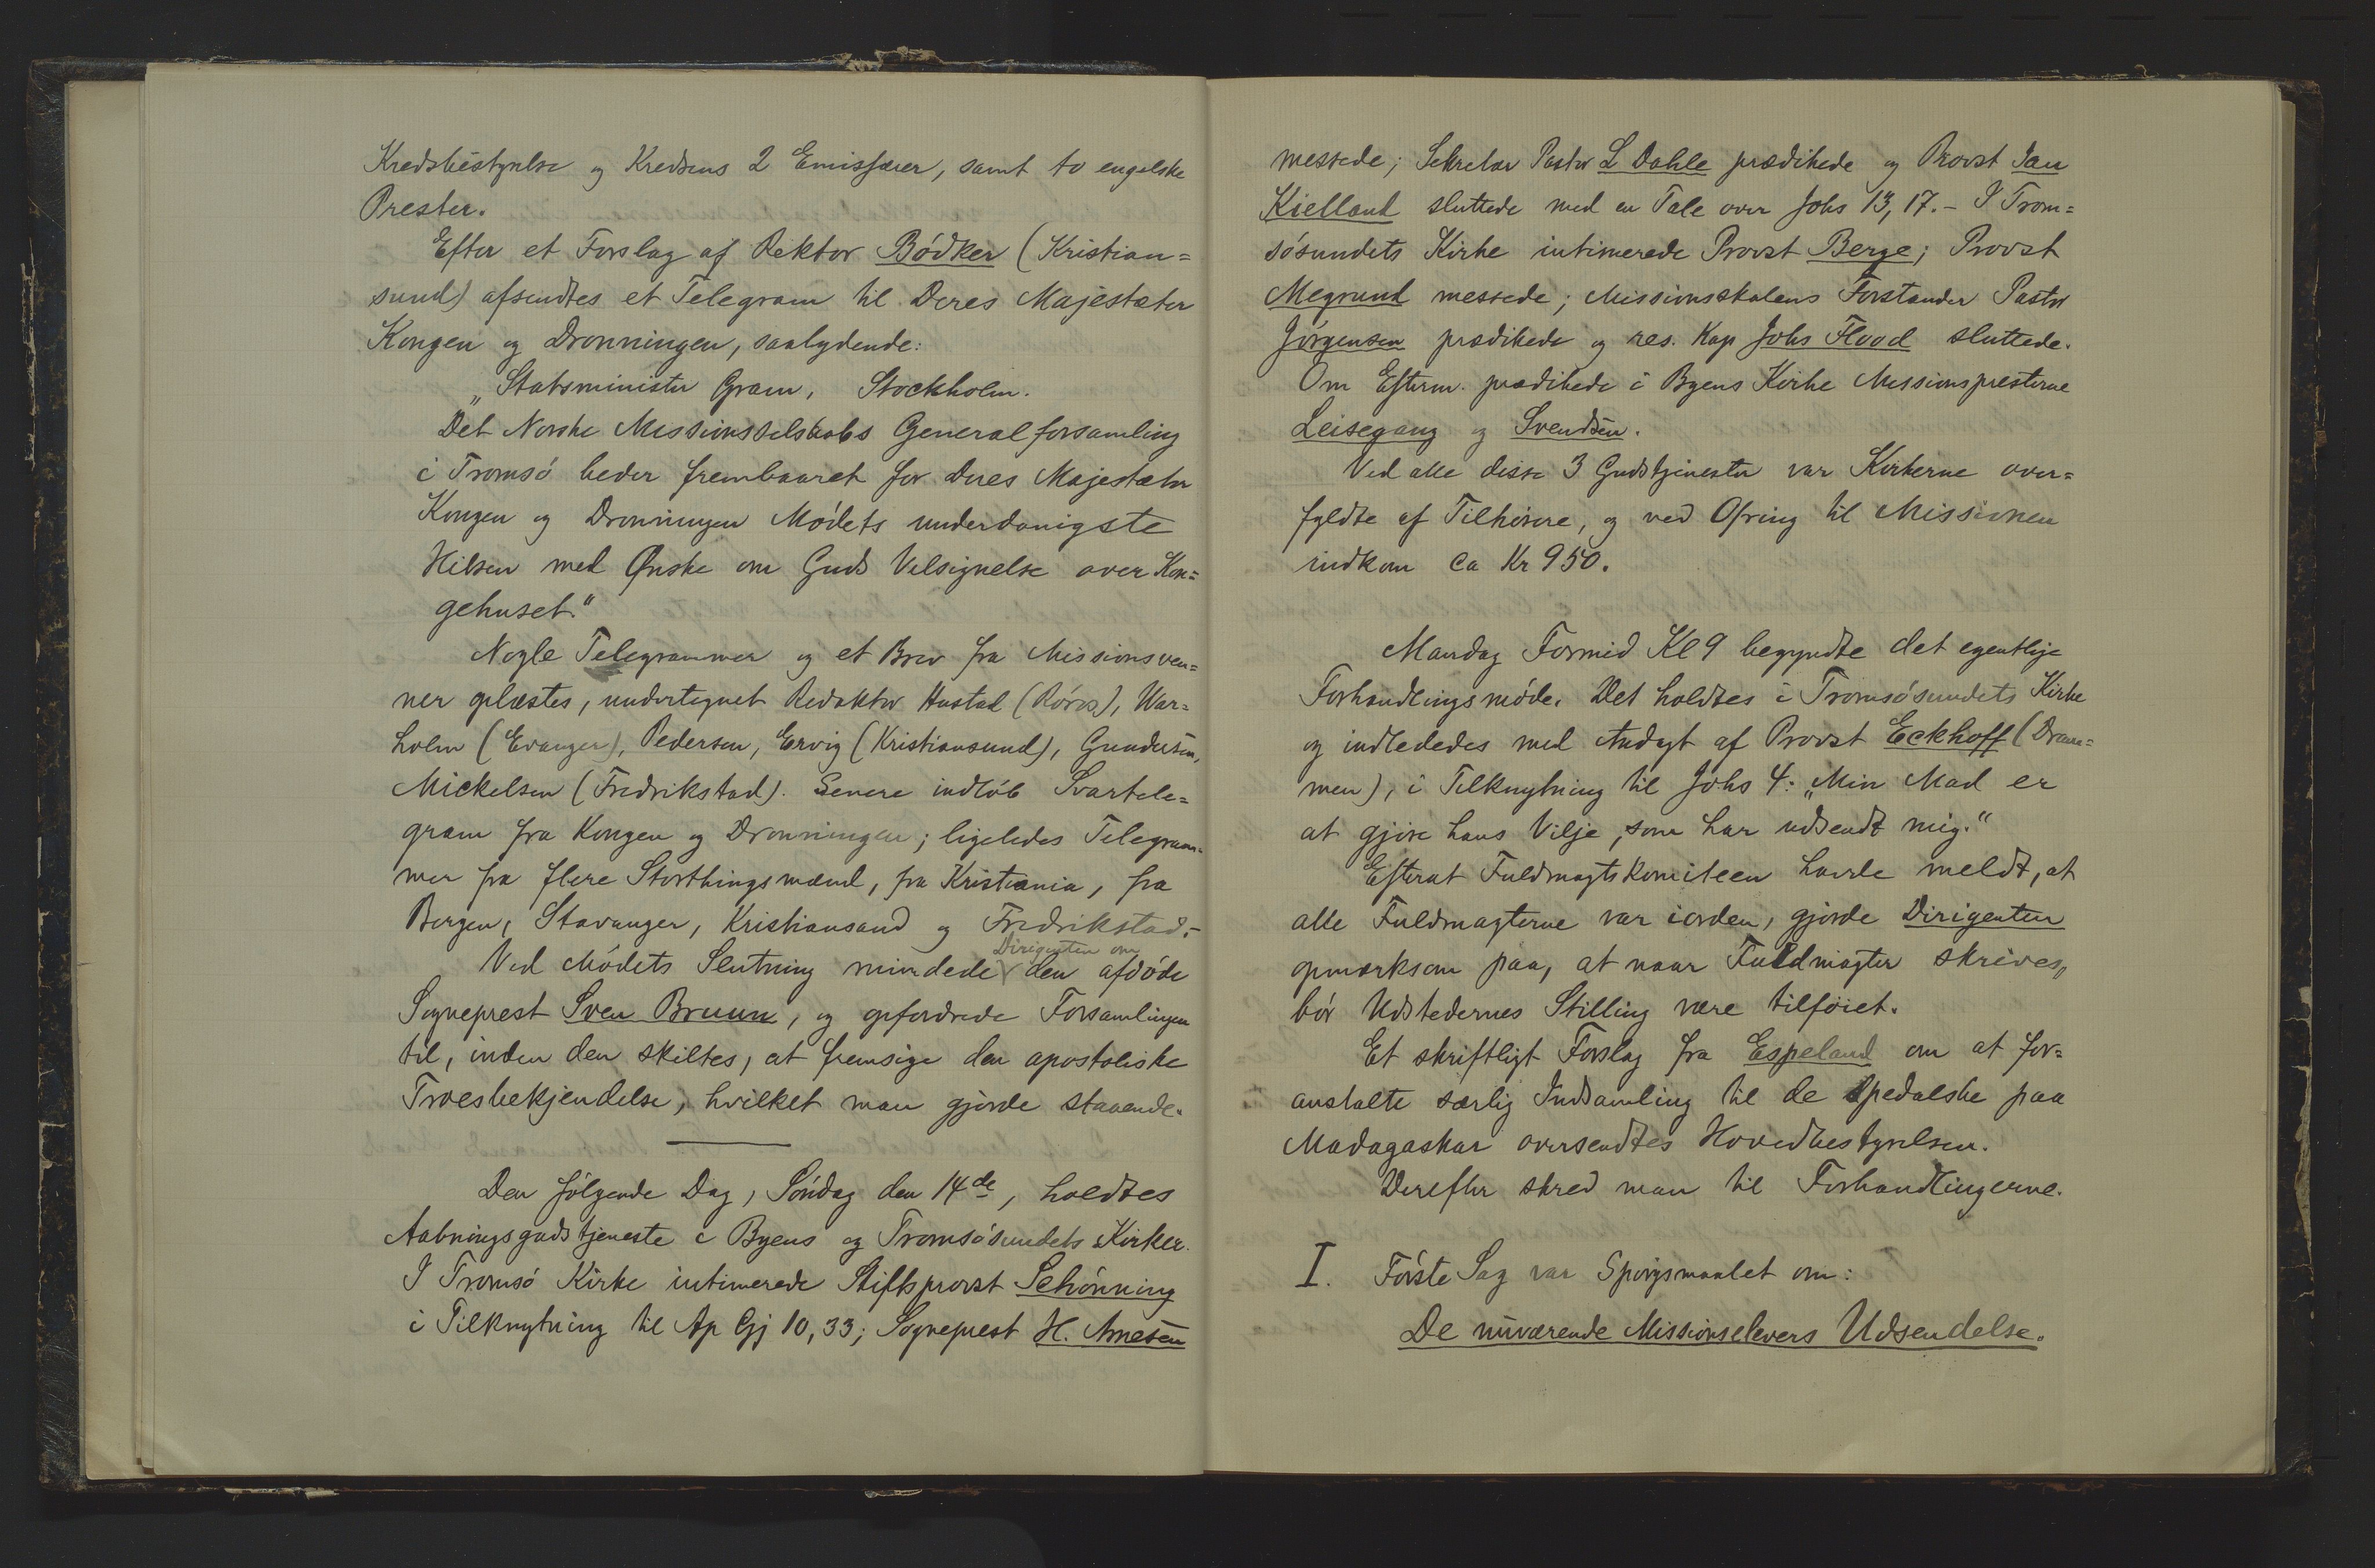 Kredsbestyrelse og Kredsens 2 Emissærer, samt to engelske
Prester.
Efter et Forslag af Rektor Bödker (Kristian=
sund) afsendtes et Telegram til Deres Majestæter
Kongen og Dronningen, saalydende:
„Statsminister Gram, Stockholm.
Det Norske Missionsselskabs Generalforsamling
i Tromsö beder frembaaret for Deres Majestæter
Kongen og Dronningen Mödets underdanigste
Hilsen med Ønske om Guds Velsignelse over Kon=
gehuset."
Nogle Telegrammer og et Brev fra Missionsven=
ner oplæstes, undertegnet Redaktör Hustad (Röros), War=
holm (Evanger), Pedersen, Ervig (Kristiansund), Gundersen,
Mickelsen (Fredrikstad). Senere indlöb Svartele=
gram fra Kongen og Dronningen; ligeledes Telegram=
mer fra flere Storthingsmænd, fra Kristiania, fra
Bergen, Stavanger, Kristiansand og Fredrikstad.-
Ved Mödets Slutning mindede Dirigenten om den afdöde
Sogneprest Sven Bruun, og opfordrede Forsamlingen
til, inden den skiltes, at fremsige den apostoliske
Troesbekjendelse, hvilket man gjorde staaende.
Den fölgende Dag, Söndag den 14de, holdtes
Aabningsgudstjeneste i Byens og Tromsösundets Kirker.
I Tromsö Kirke intimerede Stiftsprovst Schönning
i Tilknytning til Ap Gj 10,33; Sogneprest H. Arnesen
messede; Sekretær Pastor L Dahle prædikede og Provst Jan
Kielland sluttede med en Tale over Johs 13,17.- I Trom=
sösundets Kirke intimerede Provst Berge; Provst
Megrund messede; Missionsskolens Forstander Pastor
Jörgensen prædikede og res. Kap Johs Flood sluttede.
Om Efterm. prædikede i Byens Kirke Missionspresterne
Leisegang og Svendsen.
Ved alle disse 3 Gudstjenester var Kirkerne over=
fyldte af Tilhörere, og ved Ofring til Missionen
indkom ca Kr 950.
Mandag Formid Kl 9 begyndte det egentlige
Forhandlingsmöde. Det holdtes i Tromsösundets Kirke
og indlededes med Andagt af Provst Eckhoff (Dram=
men), i Tilknytning til Johs 4: „Min Mad er
at gjöre hans Vilje, som har udsendt mig."
Efterat Fuldmagtskomiteen havde meldt, at
alle Fuldmagterne var iorden, gjorde Dirigenten
opmærksom paa, at naar Fuldmagter skrives,
bör Udstedernes Stilling være tilföiet.
Et skriftligt Forslag fra Espeland om at for=
anstalte særlig Indsamling til de spedalske paa
Madagaskar oversendtes Hovedbestyrelsen.
Derefter skred man til Forhandlingerne.
I. Förste Sag var Spörgsmaalet om:
De nuværende Missionselevers Udsendelse.